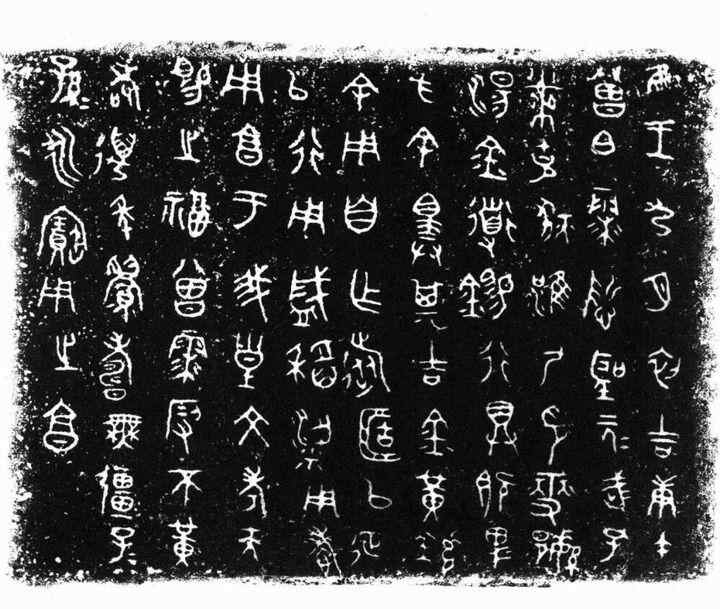 隹王九月初吉庚午
曾白霥悊聖元武孔
黹克狄淮尸印燮繁
湯金道錫行具既卑
方余擇其吉金黃鑪
余用自乍旅簠以征
以行用盛稻粱用孝
用亯于我皇文考天
賜之福曾霥叚不黃
耇邁年眉壽無疆子
孫永寶用之亯